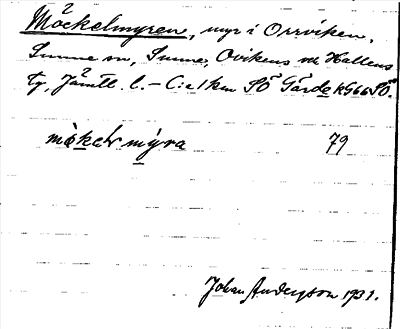 Möckelmyren, myr i Orrviken,
Sunne sn, Sunne, Ovikens och Hallens
tg, Jämtl. l. — C:a 1 km SÖ Gärde kG66SÖ.
mòkeḷ mýra 79
Johan Anderson 1931.